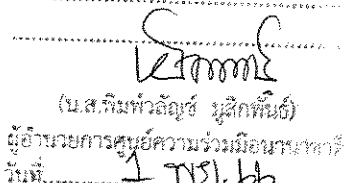 (น.ส.พิมพ์วลัญช์ มูสิกพันธ์)
ผู้อำนวยการศูนย์ความร่วมมือนานาชาติ
วันที่ 1 พ.ย. 66